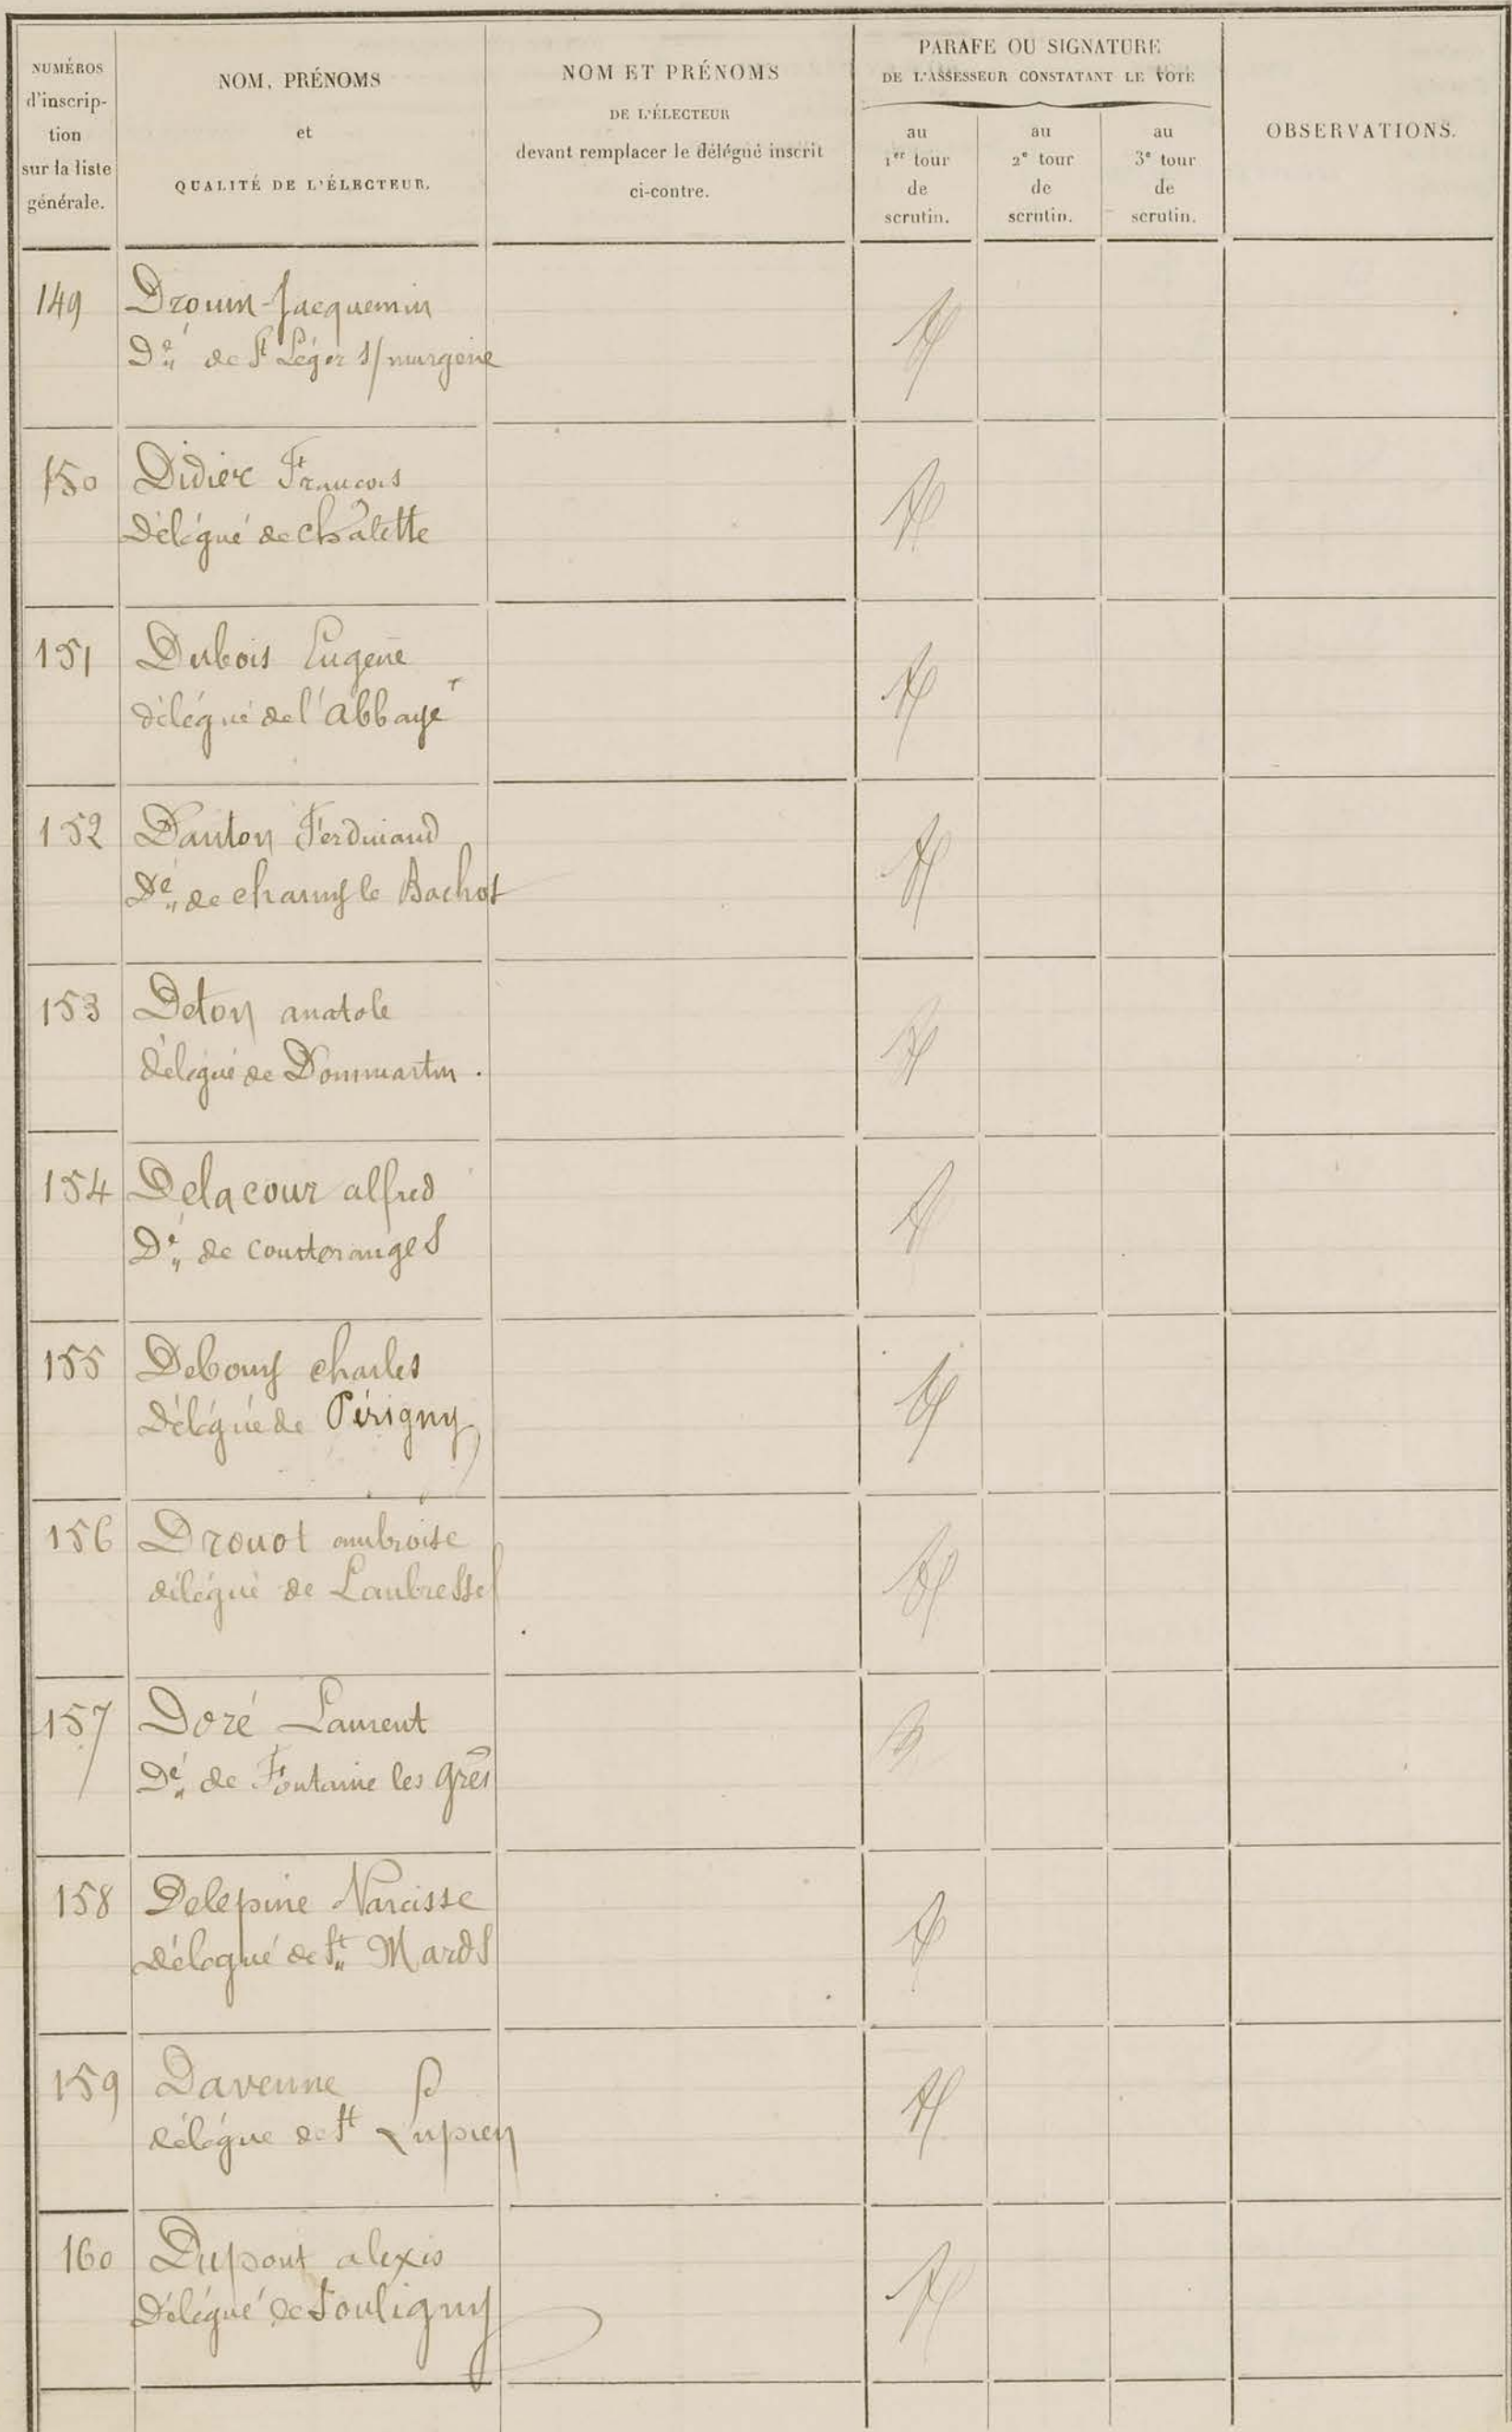 NUMÉROS
d'inscrip-
tion
sur la liste
générale.
NOM, PRÉNOMS
et
QUALITÉ DE L'ÉLECTEUR.
NOM ET PRÉNOMS
DE L'ÉLECTEUR
devant remplacer le délégué inscrit
ci-contre.
PARAFE OU SIGNATURE
DE L'ASSESSEUR CONSTATANT LE VOTE
au
1er tour
de
scrutin.
au
2e tour
de
scrutin.
au
3e tour
de
scrutin.
OBSERVATIONS.
149 Drouin-Jacquemin
Dé de St Léger s/ margerie
150 Didier Francois
Délégué de Chalette
151 Dubois Eugène
délégué de l'Abbaye
152 Danton Ferdinand
Dé de charny le Bachot
153 Deton anatole
délégué de Dommartin.
154 Delacour alfred
Dé de Courteranges
155 Debouy charles
Délégué de Périgny
156 Drouot ambroise
délégué de Laubressel
157 Doré Laurent
Dé de Fontaine les Grès
158 Delepine Narcisse
délégué de St Mards
159 Davenne
délégué de St Lupien
160 Dupont alexis
Délégué de Souligny